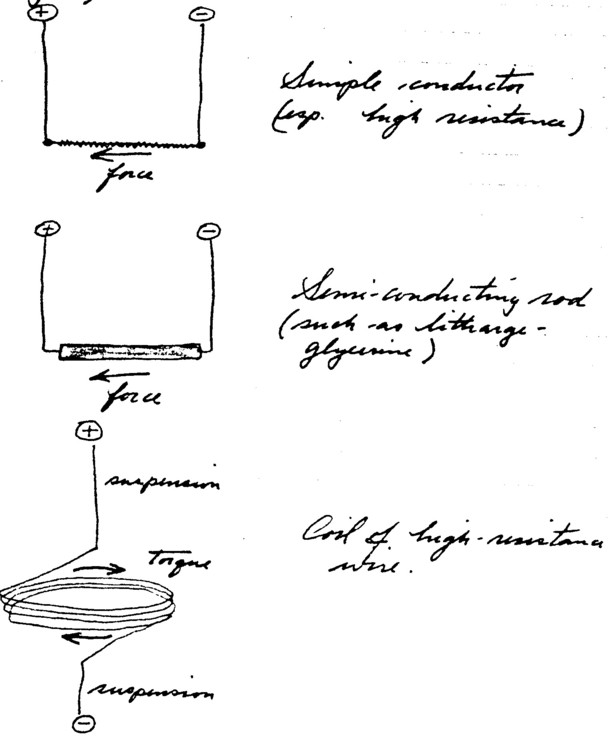 + −
Simple conductor
(esp. high resistance)
force
+ −
Semi-conducting rod
(such as litharge-
glycerine)
force
+
suspension
Torque
Coil of high-resistance
wire.
suspension
−